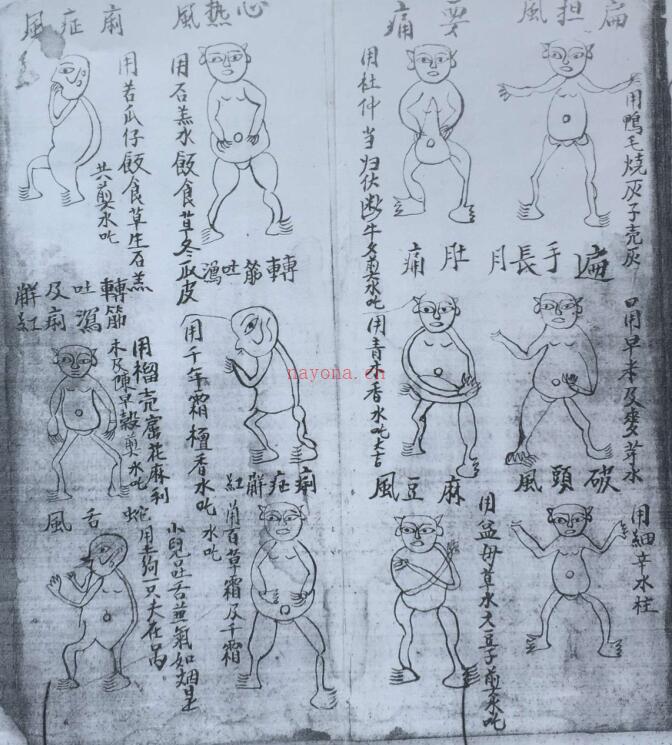 扁担風
用鴨毛燒灰子壳灰
要痛
用杜仲当归伏断牛夕煎水吃
遍手長月
用早禾及麥芽水
肚痛
用青木香水吃
破頭風
用細辛水柱
麻豆風
用益母草水大豆子煎水吃
心热風
用石羔水飯食草冬瓜皮
痢症風
用苦瓜仔飯食草生石羔
共煎水吃
轉筋吐瀉
用千年霜檀香水吃
轉筋吐瀉
及痢紅觧
用榴壳花麻利
禾及陳早穀煎水吃
痢症觧紅
用百草霜及千霜
水吃
舌風
小兒吐舌並氣如烟是
蛇用土狗一只夫在
nayona.cn